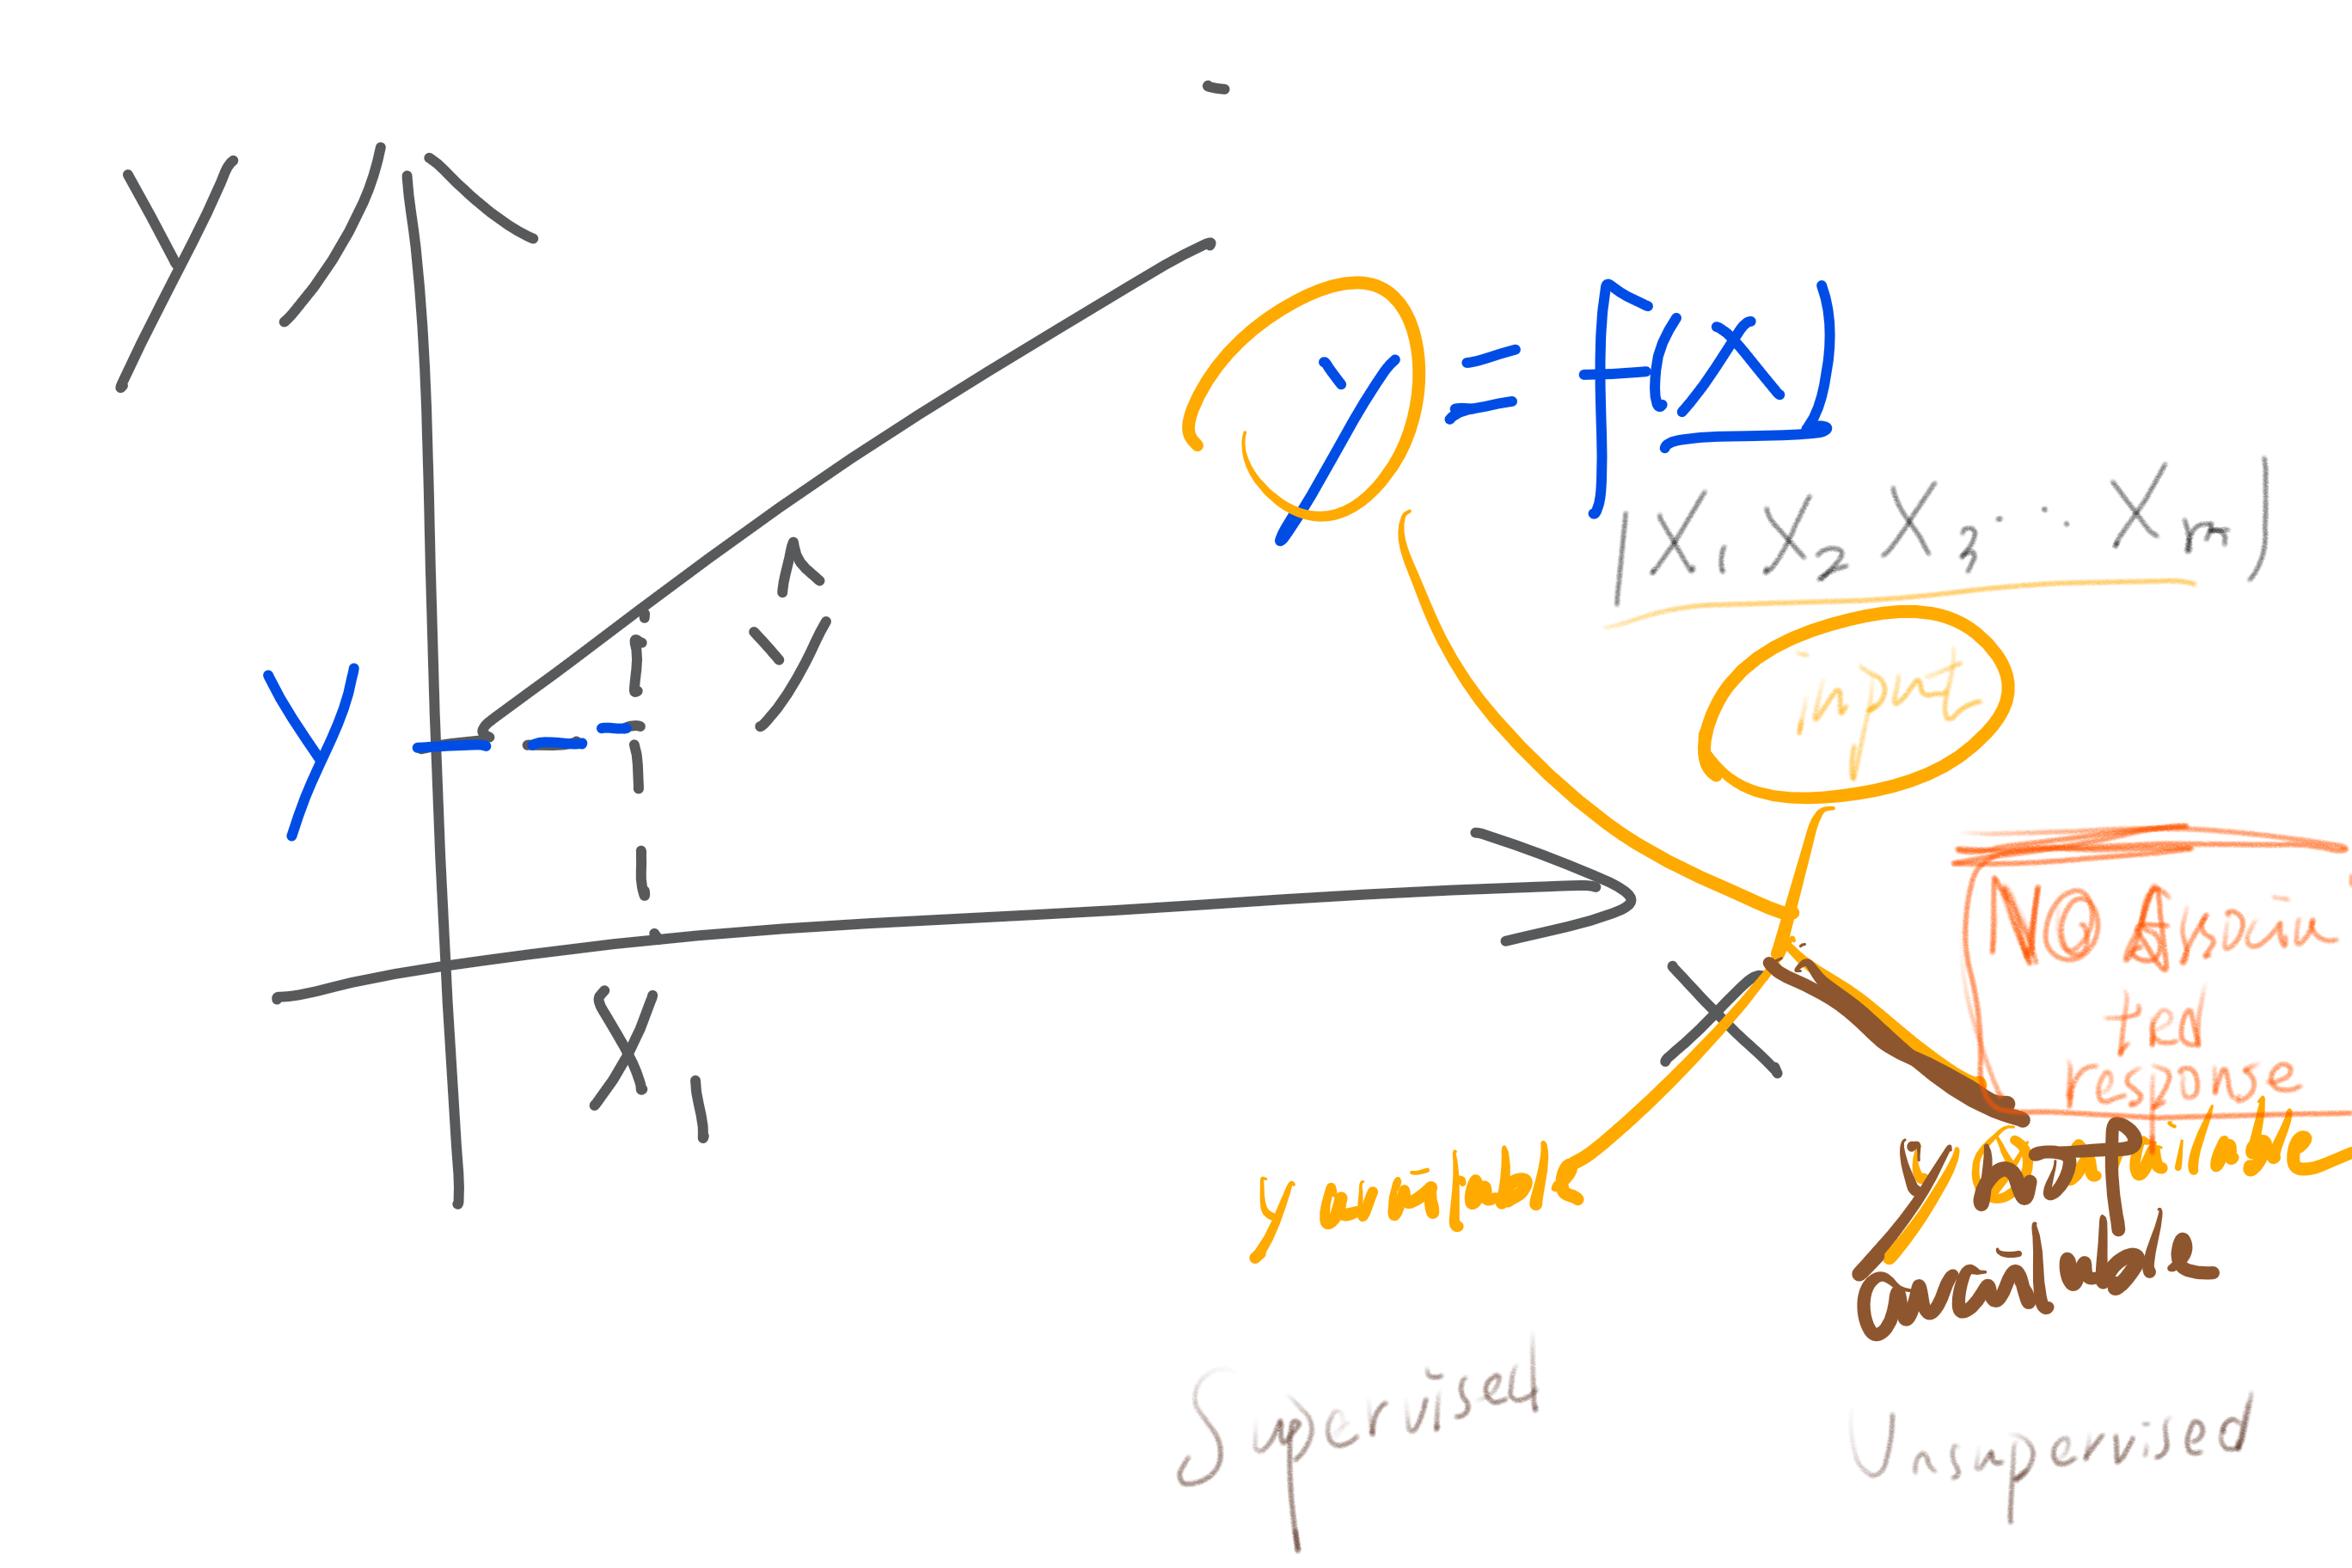 Y
y = f(x)
(X1 X2 X3 ... Xn)
ŷ
input
Y
NO Associa
ted
response
X
X1
y available
y not
available
Supervised
Unsupervised